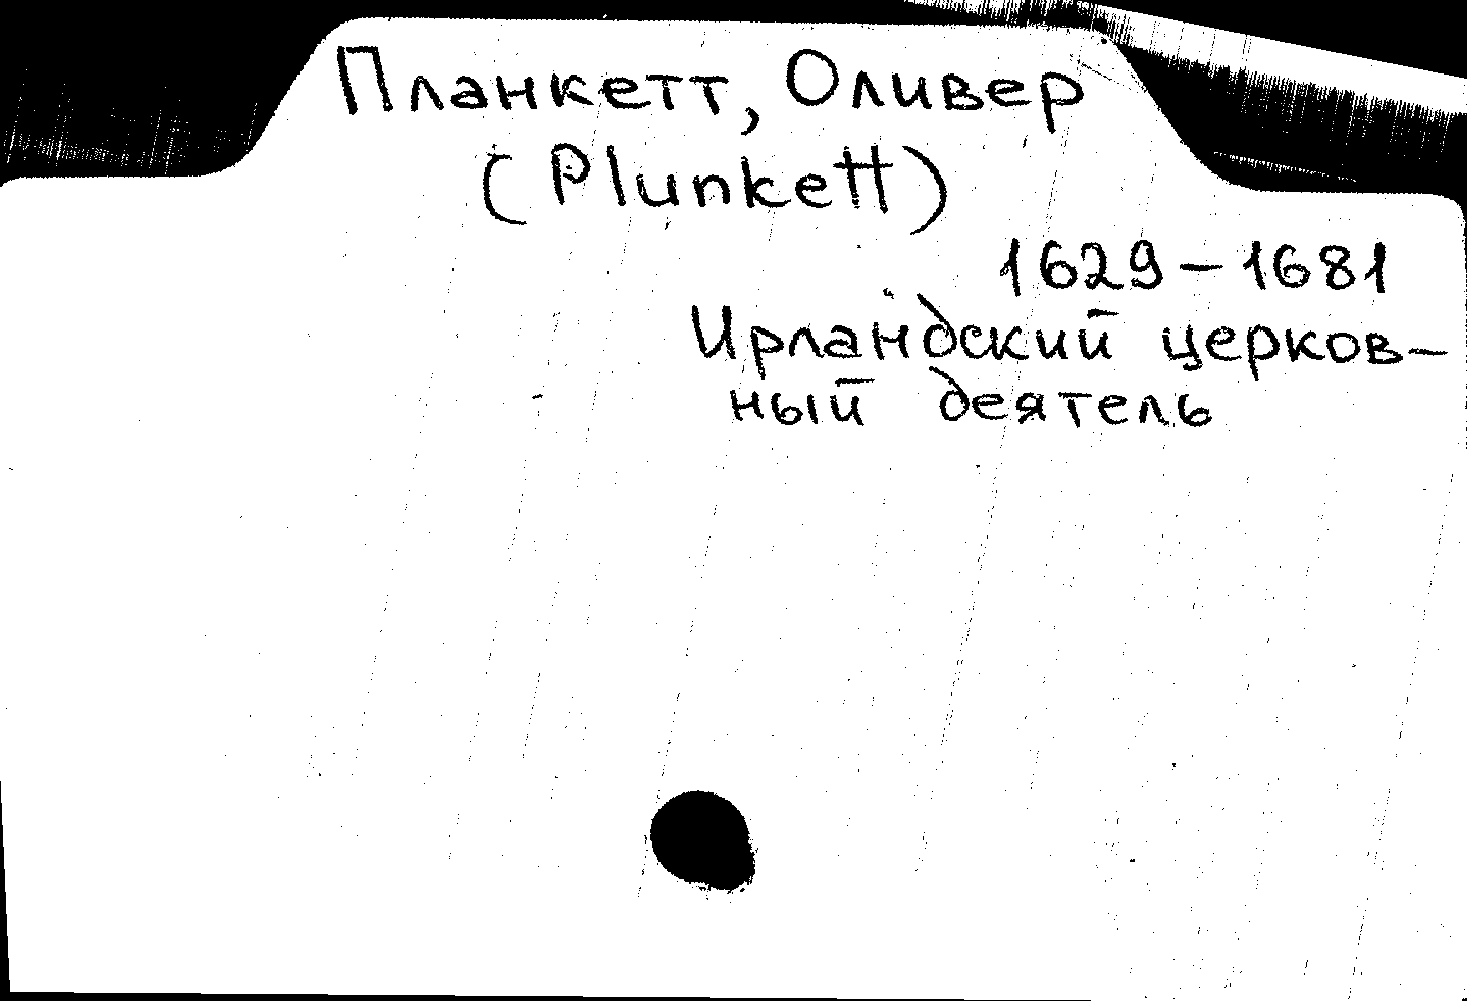 Планкетт, Оливер
(Plunkett)
1629–1681
Ирландский церков-
ный деятель